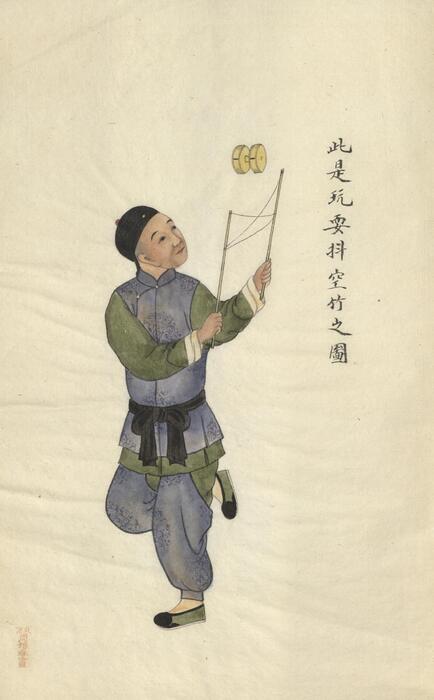 此是玩耍抖空竹之圖